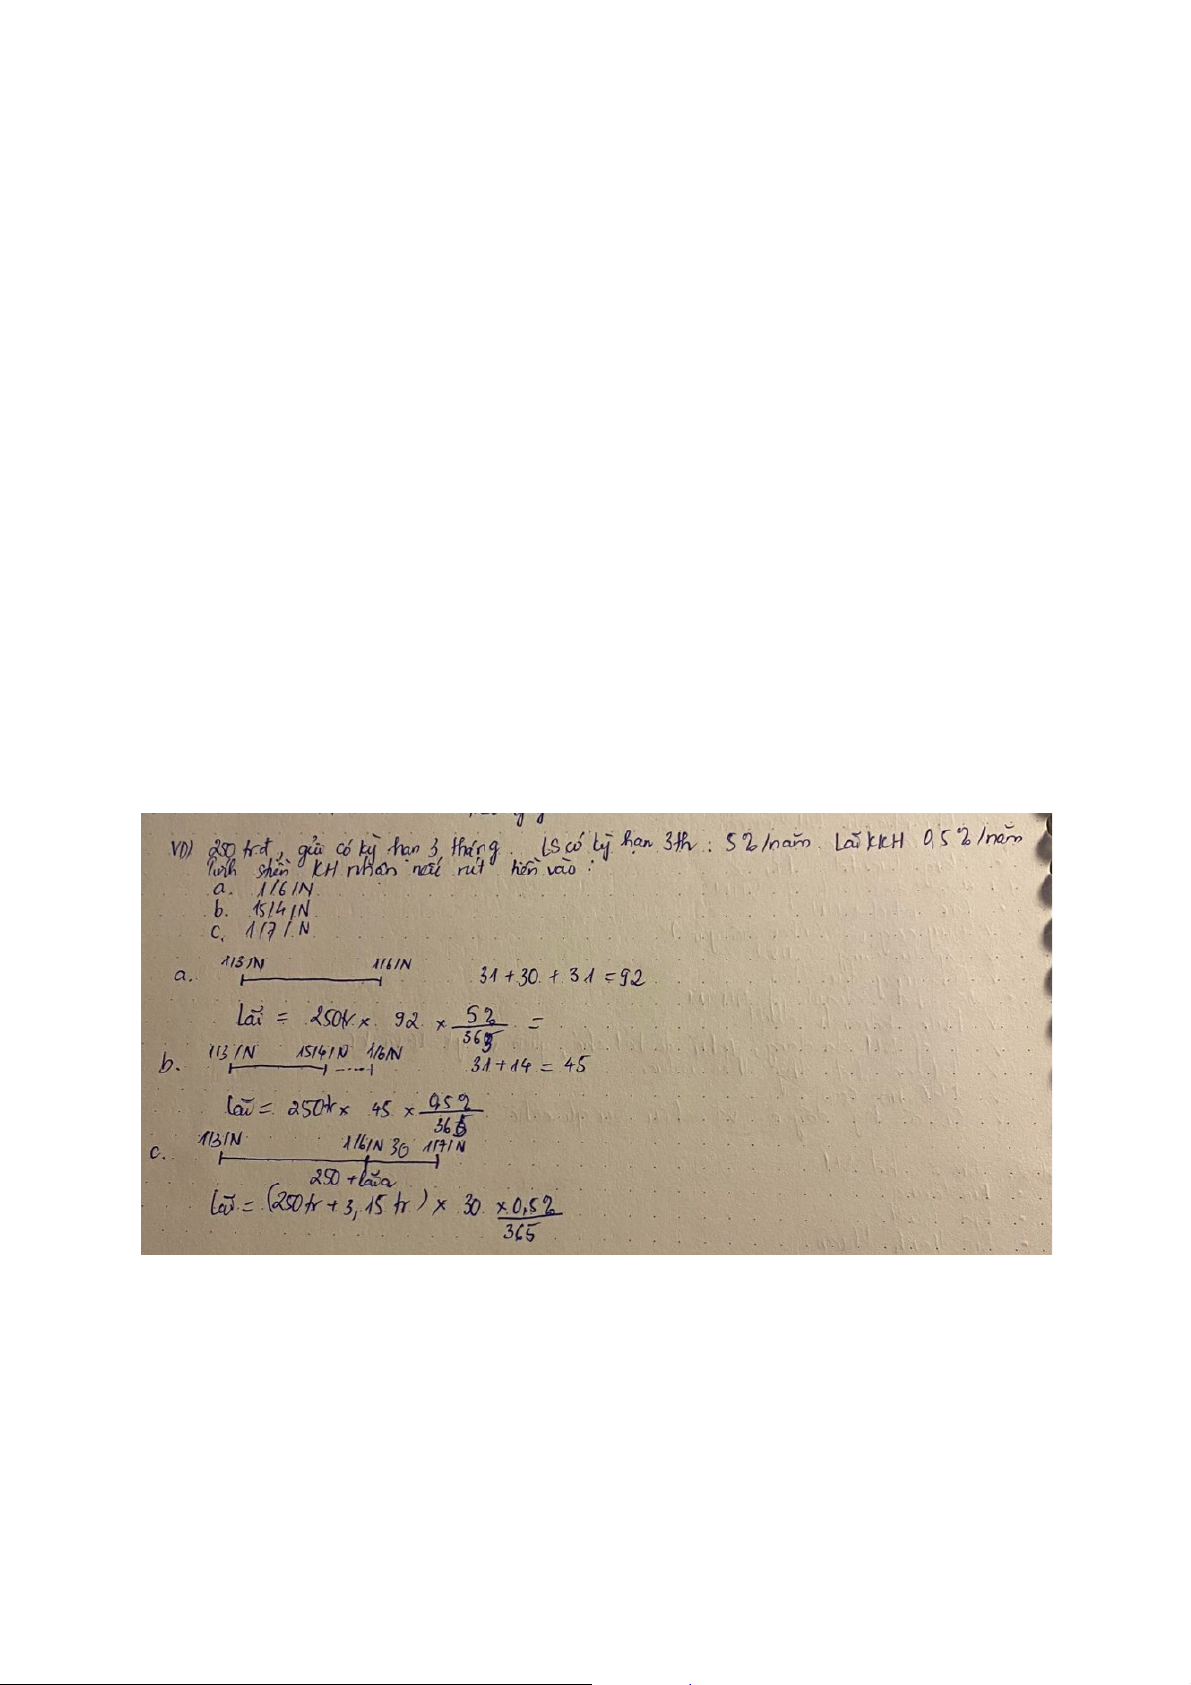 VD) 250 trđ, gửi có kỳ hạn 3 tháng. LS có kỳ hạn 3th: 5%/năm. Lãi KKH 0,5%/năm
Tính stiền KH nhận nếu rút tiền vào:
a. 1/6/N
b. 15/4/N
c. 1/7/N
a. 1/3/N 1/6/N 31 + 30 + 31 = 92
Lãi = 250tr x 92 x 5%/365 =
b. 1/3/N 15/4/N 1/6/N 31 + 14 = 45
Lãi = 250tr x 45 x 0,5%/365
c. 1/3/N 1/6/N 30 1/7/N
250 + lãi a
Lãi = (250tr + 3,15 tr) x 30 x 0,5%/365